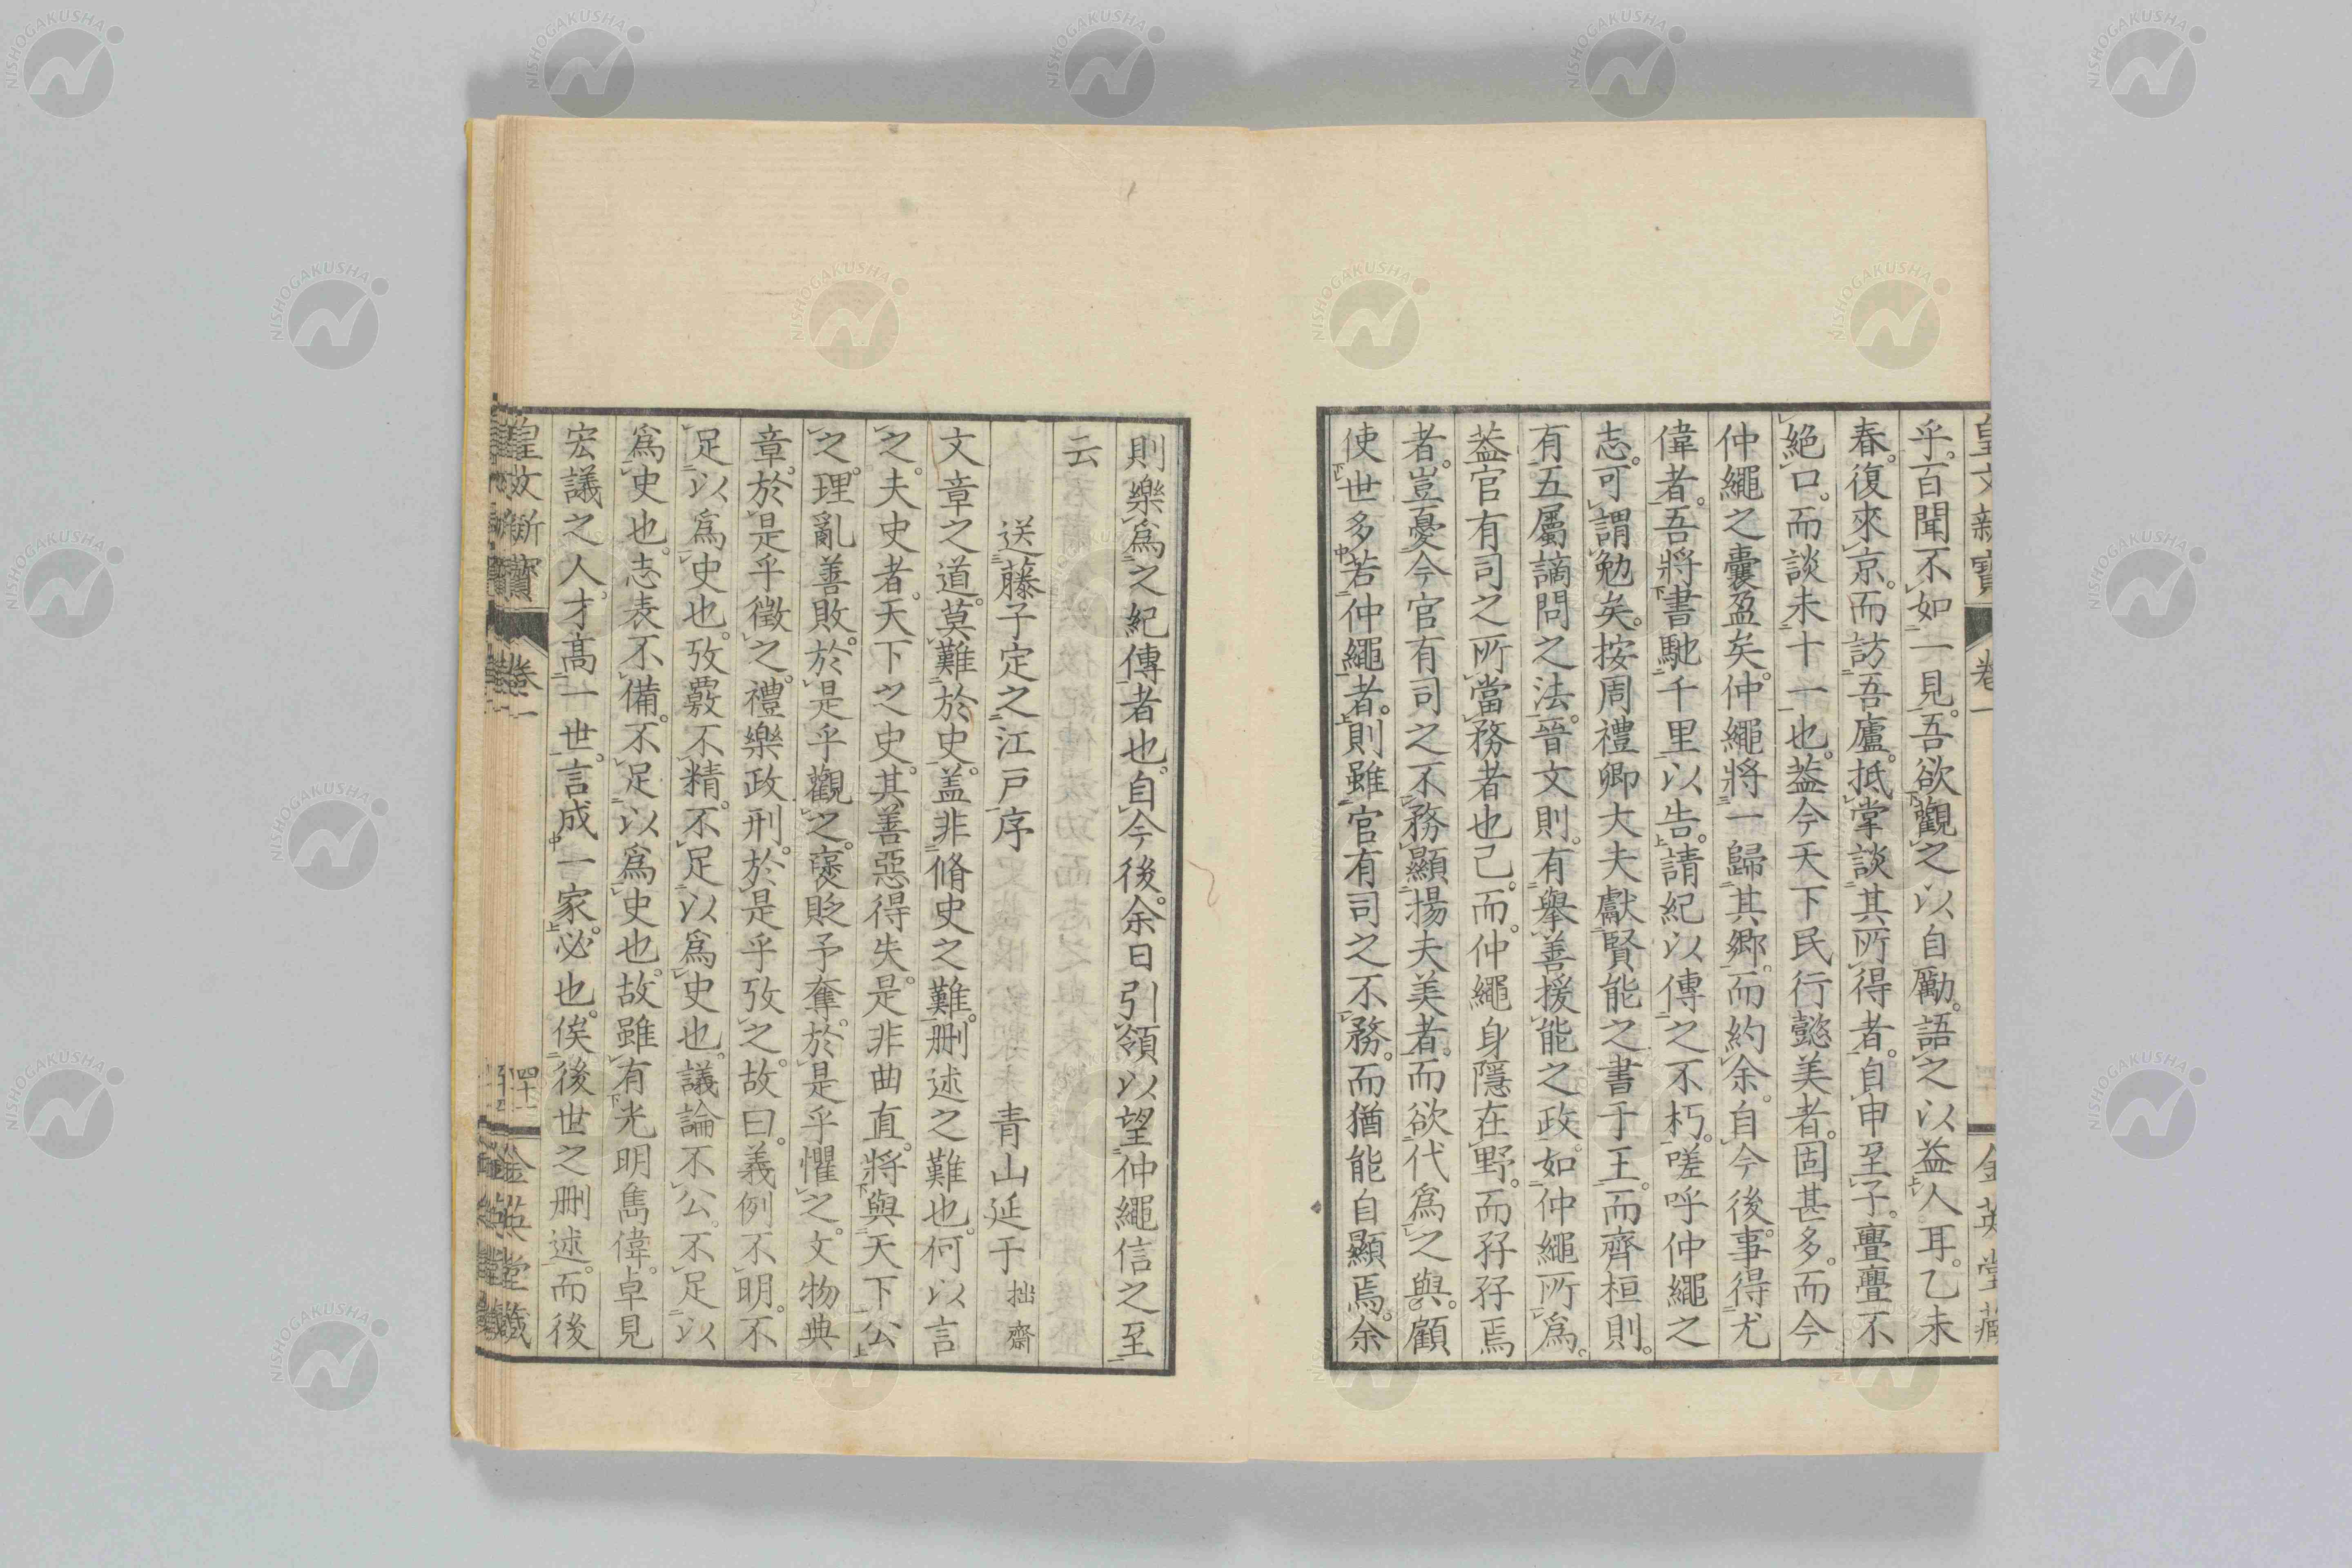 皇文新寶 卷一 金英堂藏
乎。百聞不如一見。吾欲觀之以自勵。語之以益人耳。乙未
春。復來京。而訪吾廬。抵掌談其所得者。自申至子。亹亹不
絕口。而談未十一也。蓋今天下民行懿美者。固甚多。而今
仲繩之囊盈矣。仲繩將一歸其鄉。而約余。自今後。事得尤
偉者。吾將書馳千里以告。請紀以傳之不朽。嗟呼仲繩之
志。可謂勉矣。按周禮卿大夫獻賢能之書于王。而齊桓則。
有五屬謫問之法。晉文則。有舉善援能之政。如仲繩所爲。
葢官有司之所當務者也已。而。仲繩身隱在野。而孖孖焉
者。豈憂今官有司之不務顯揚夫美者。而欲代爲之與。顧
使世多若仲繩者。則雖官有司之不務。而猶能自顯焉。余
則樂爲之紀傳者也。自今後。余日引領以望仲繩信之至
云
送藤子定之江戸序 青山延于 拙齋
文章之道。莫難於史。盖非脩史之難。刪述之難也。何以言
之。夫史者。天下之史。其善惡得失。是非曲直。將與天下公
之。理亂善敗。於是乎觀之。褒貶予奪。於是乎懼之。文物典
章。於是乎徵之。禮樂政刑。於是乎攷之。故曰。義例不明。不
足以爲史也。攷覈不精。不足以爲史也。議論不公。不足以
爲史也。志表不備。不足以爲史也。故雖有光明雋偉。卓見
宏議之人。才高一世。言成一家。必也。俟後世之刪述。而後
皇文新寶 卷一 四十一 金英堂藏
NISHOGAKUSHA